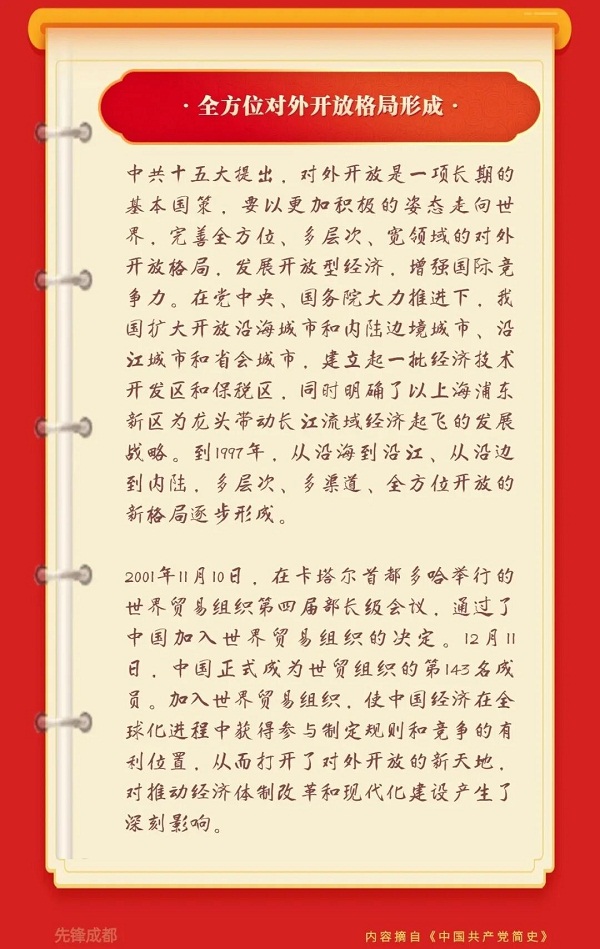 ·全方位对外开放格局形成·
中共十五大提出，对外开放是一项长期的
基本国策，要以更加积极的姿态走向世
界，完善全方位、多层次、宽领域的对外
开放格局，发展开放型经济，增强国际竞
争力。在党中央、国务院大力推进下，我
国扩大开放沿海城市和内陆边境城市、沿
江城市和省会城市，建立起一批经济技术
开发区和保税区，同时明确了以上海浦东
新区为龙头带动长江流域经济起飞的发展
战略。到1997年，从沿海到沿江、从沿边
到内陆，多层次、多渠道、全方位开放的
新格局逐步形成。
2001年11月10日，在卡塔尔首都多哈举行的
世界贸易组织第四届部长级会议，通过了
中国加入世界贸易组织的决定。12月11
日，中国正式成为世贸组织的第143名成
员。加入世界贸易组织，使中国经济在全
球化进程中获得参与制定规则和竞争的有
利位置，从而打开了对外开放的新天地，
对推动经济体制改革和现代化建设产生了
深刻影响。
先锋成都
内容摘自《中国共产党简史》